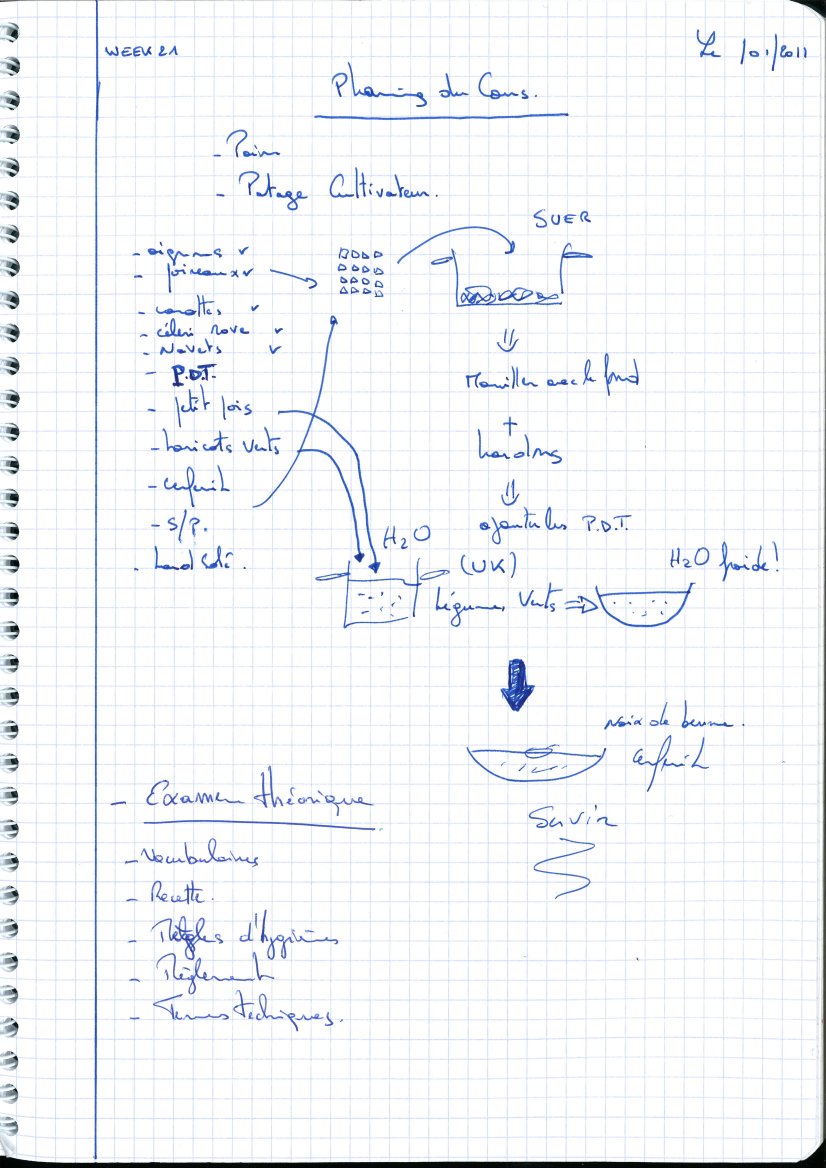 WEEK 21
Le /01/2011
Planing du Cours.
- Pain
- Potage Cultivateur.
SUER
- oignons v
- poireaux v
- carottes v
- céleri rave v
- Navets v
- P.D.T.
- petit pois
- haricots verts
- cerfeuil
- S/P.
- lard salé.
Mouiller avec le fond
+
lardons
ajouter les P.D.T.
H2O
(UK)
Légumes Verts
H2O froide!
noix de beurre.
cerfeuil
Servir
- Examen théorique
- Vocabulaires
- Recette.
- Règles d'hygiènes
- Règlement
- Termes techniques.